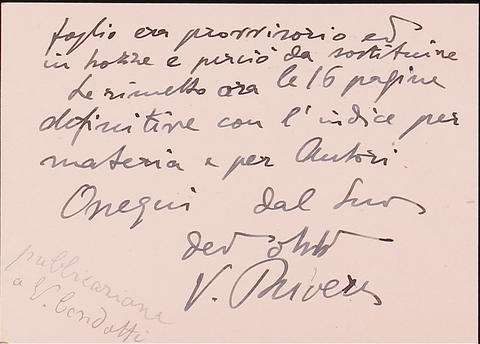 foglio era provvisorio ed
in bozze e perciò da sostituire
Le rimetto ora le 16 pagine
definitive con l'indice per
materia e per Autori.
Ossequi dal Suo
dev
V. Rivera
pubblicazione